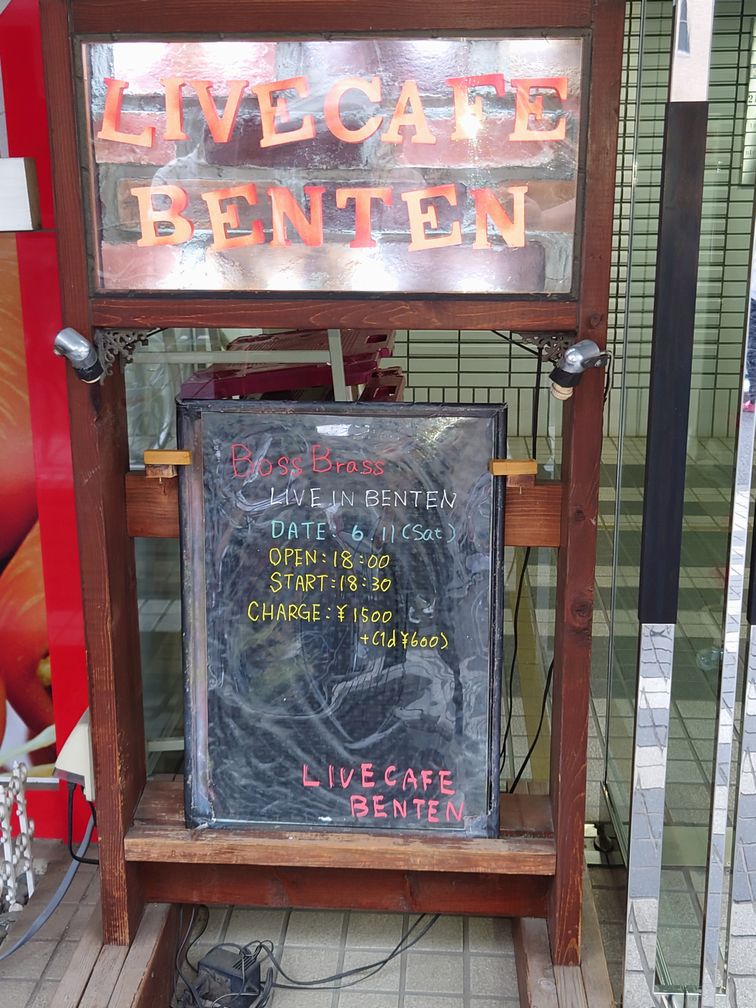 LIVECAFE
BENTEN
Boss Brass
LIVE IN BENTEN
DATE: 6.11(Sat)
OPEN:18:00
START:18:30
CHARGE:¥1500
+(1d¥600)
LIVECAFE
BENTEN